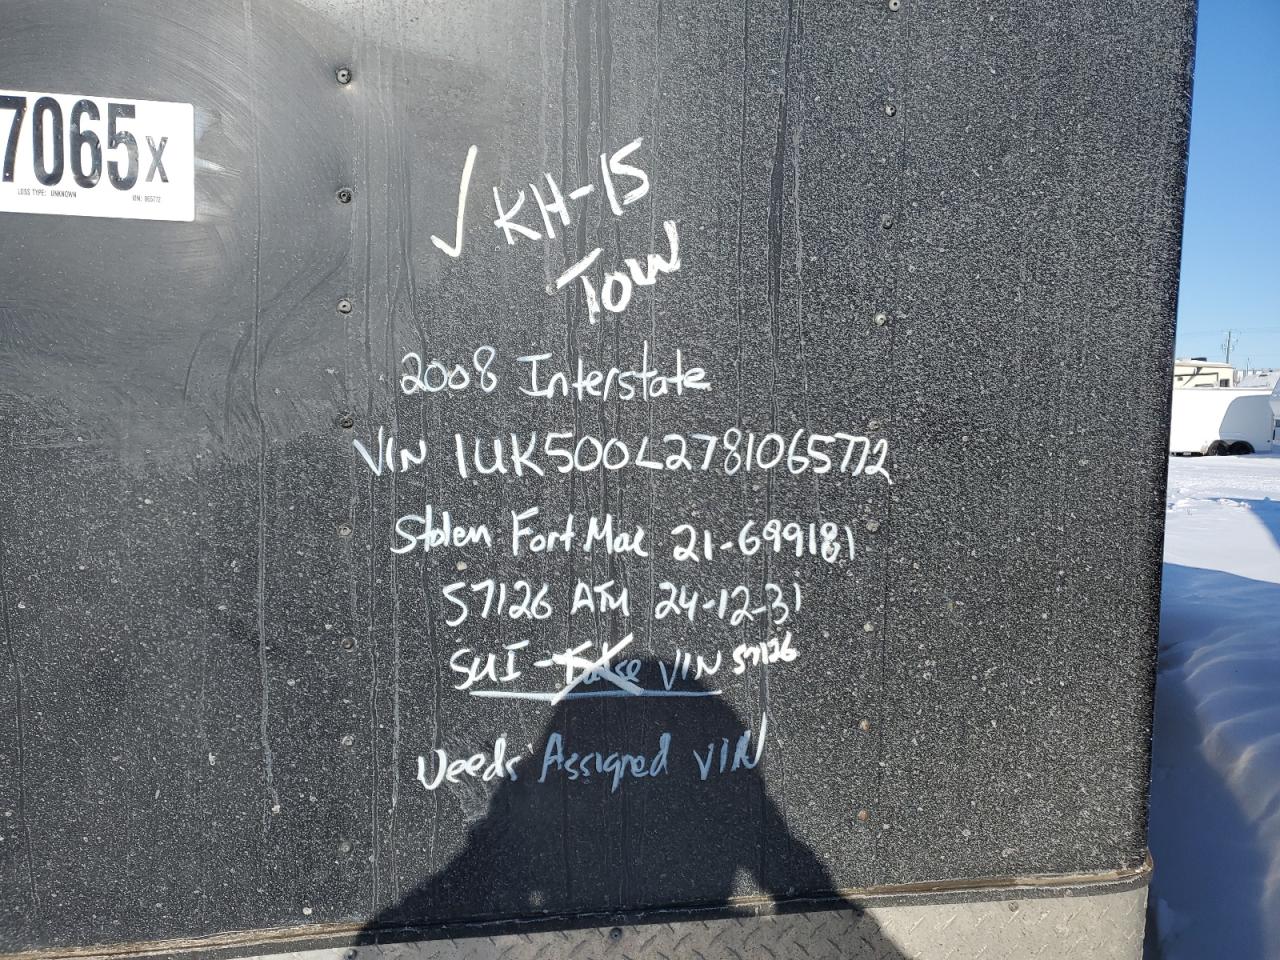 7065X
LOSS TYPE: UNKNOWN VIN: 065772
✓ KH-15
TOW
2008 Interstate
VIN 1UK500L2781065772
Stolen Fort Mac 21-699181
57126 ATM 24-12-31
SUI - False VIN 57126
Needs Assigned VIN